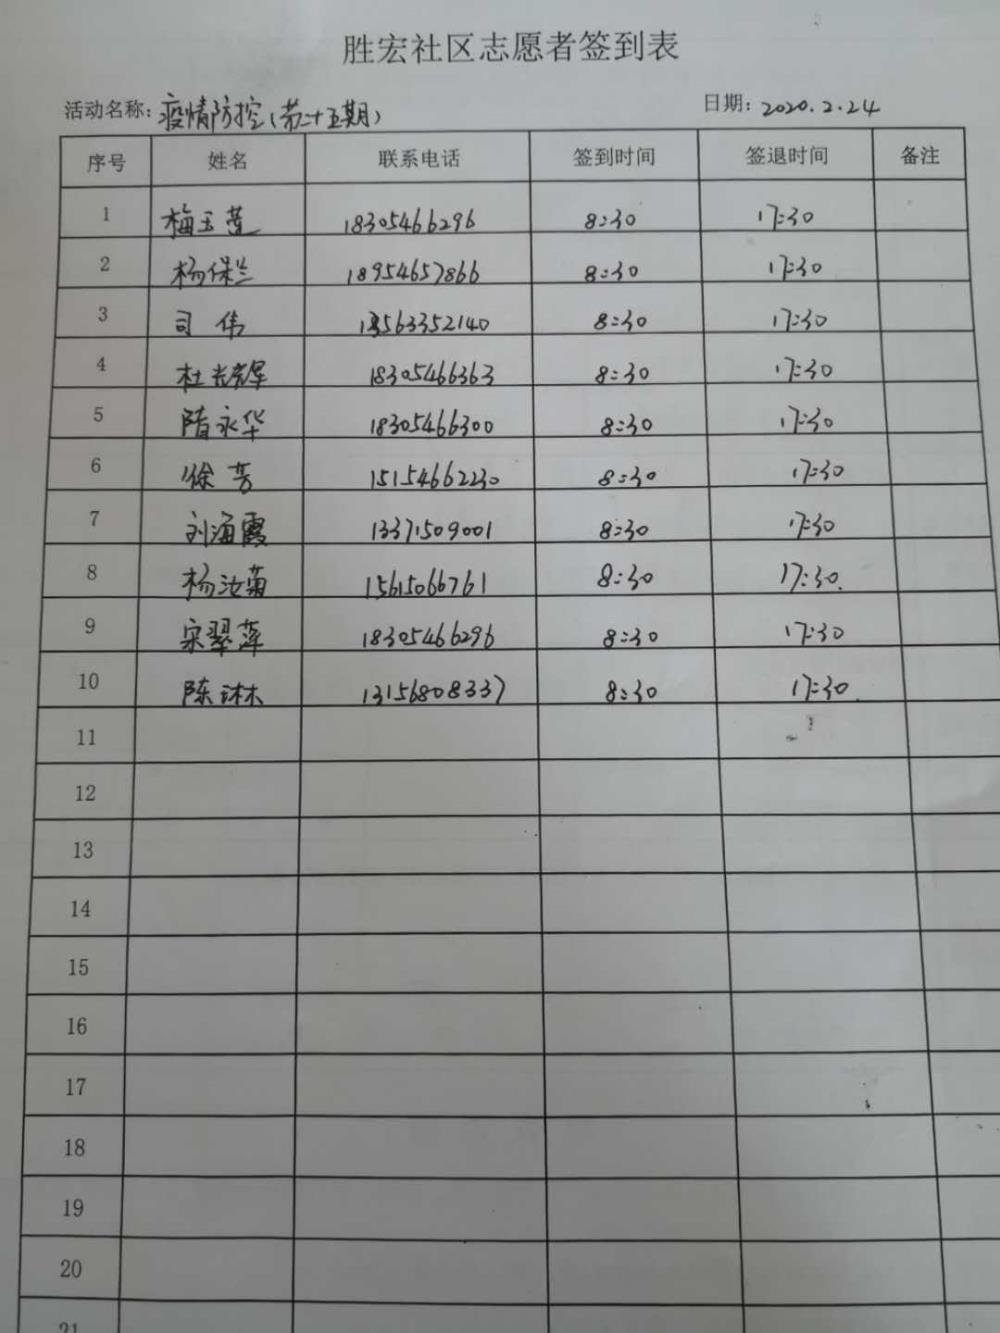 胜宏社区志愿者签到表
活动名称：疫情防控（第二十五期） 日期：2020.2.24
序号 姓名 联系电话 签到时间 签退时间 备注
1 梅玉莲 18305466296 8:30 17:30
2 杨保兰 18954657866 8:30 17:30
3 司伟 13563352140 8:30 17:30
4 杜光辉 18305466363 8:30 17:30
5 隋永华 18305466300 8:30 17:30
6 徐芳 15154662230 8:30 17:30
7 刘海霞 13371509001 8:30 17:30
8 杨汝菊 15615066761 8:30 17:30.
9 宋翠萍 18305466296 8:30 17:30
10 陈琳 13156808337 8:30 17:30.
11
12
13
14
15
16
17
18
19
20
21